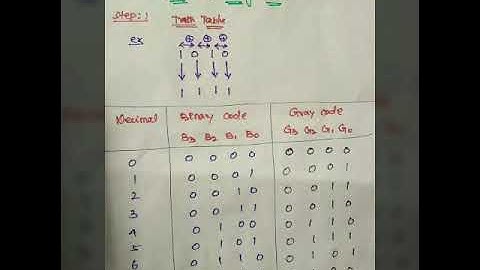 Step: 1 Truth Table
ex ⊕ ⊕ ⊕
1 0 1 0
1 1 1 1
Decimal Binary code Gray code
B3 B2 B1 B0 G3 G2 G1 G0
0 0 0 0 0 0 0 0 0
1 0 0 0 1 0 0 0 1
2 0 0 1 0 0 0 1 1
3 0 0 1 1 0 0 1 0
4 0 1 0 0 0 1 1 0
5 0 1 0 1 0 1 1 1
6 0 1 1 0 0 1 0 1